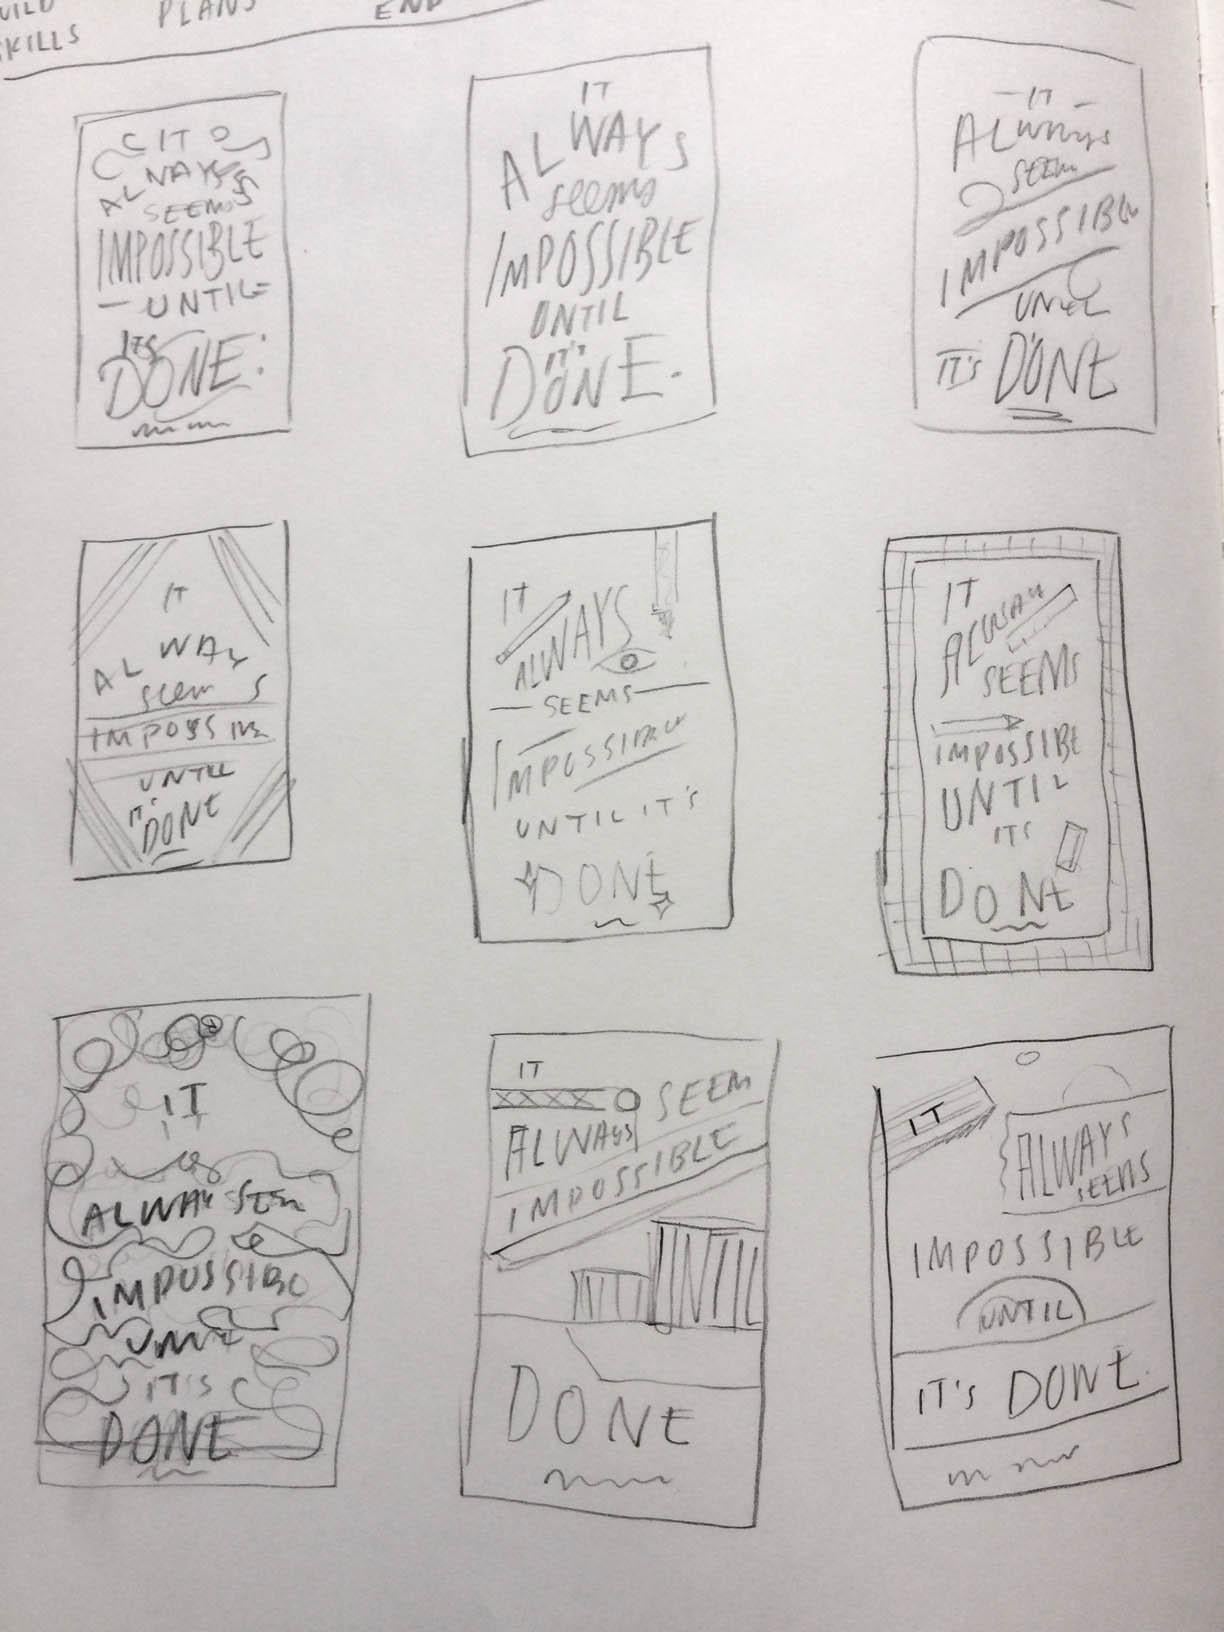 UILD
SKILLS
PLANS
END
IT
ALWAYS
SEEMS
IMPOSSIBLE
— UNTIL
ITS
DONE.
IT
ALWAYS
seems
IMPOSSIBLE
UNTIL
IT'S
DONE.
— IT —
ALWAYS
SEEM
IMPOSSIBLE
UNTIL
IT'S DONE
IT
ALWAY
seem S
IMPOSSIBLE
UNTIL
IT'S
DONE
IT
ALWAYS
— SEEMS —
IMPOSSIBLE
UNTIL IT'S
DONE
IT
ALWAY
SEEMS
IMPOSSIBE
UNTIL
ITS
DONE
IT
ALWAY SEEM
IMPOSSIBL
UNTIL
IT'S
DONE
IT
ALWAYS
SEEM
IMPOSSIBLE
UNTIL
DONE
IT
ALWAYS
SEEMS
IMPOSSIBLE
UNTIL
IT'S DONE.